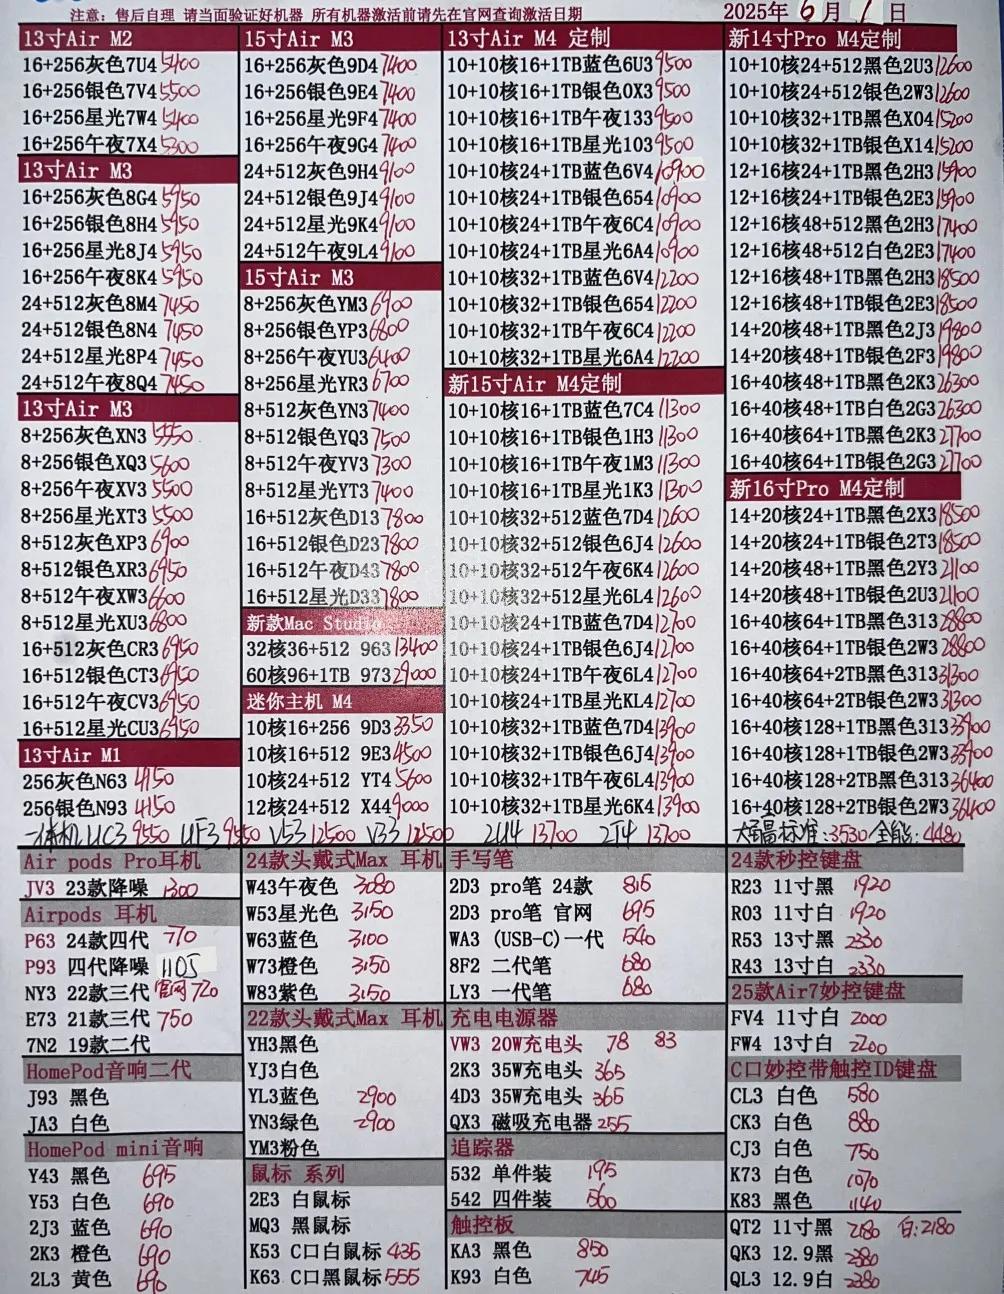 注意：售后自理 请当面验证好机器 所有机器激活前请先在官网查询激活日期
2025年6月1日
13寸Air M2
16+256灰色7U4 5400
16+256银色7V4 5500
16+256星光7W4 5400
16+256午夜7X4 5300
13寸Air M3
16+256灰色8G4 5950
16+256银色8H4 5950
16+256星光8J4 5950
16+256午夜8K4 5950
24+512灰色8M4 7450
24+512银色8N4 7450
24+512星光8P4 7450
24+512午夜8Q4 7450
13寸Air M3
8+256灰色XN3 5550
8+256银色XQ3 5600
8+256午夜XV3 5500
8+256星光XT3 5500
8+512灰色XP3 6900
8+512银色XR3 6950
8+512午夜XW3 6600
8+512星光XU3 6800
16+512灰色CR3 6950
16+512银色CT3 6950
16+512午夜CV3 6950
16+512星光CU3 6950
13寸Air M1
256灰色N63 4150
256银色N93 4150
15寸Air M3
16+256灰色9D4 7400
16+256银色9E4 7400
16+256星光9F4 7400
16+256午夜9G4 7400
24+512灰色9H4 9100
24+512银色9J4 9100
24+512星光9K4 9100
24+512午夜9L4 9100
15寸Air M3
8+256灰色YM3 6900
8+256银色YP3 6800
8+256午夜YU3 6400
8+256星光YR3 6700
8+512灰色YN3 7400
8+512银色YQ3 7500
8+512午夜YV3 7300
8+512星光YT3 7400
16+512灰色D13 7800
16+512银色D23 7800
16+512午夜D43 7800
16+512星光D33 7800
新款Mac Studio
32核36+512 963 13400
60核96+1TB 973 29000
迷你主机 M4
10核16+256 9D3 3350
10核16+512 9E3 4500
10核24+512 YT4 5600
12核24+512 X44 9000
13寸Air M4 定制
10+10核16+1TB蓝色6U3 9500
10+10核16+1TB银色0X3 9500
10+10核16+1TB午夜133 9500
10+10核16+1TB星光103 9500
10+10核24+1TB蓝色6V4 10900
10+10核24+1TB银色654 10900
10+10核24+1TB午夜6C4 10900
10+10核24+1TB星光6A4 10900
10+10核32+1TB蓝色6V4 12200
10+10核32+1TB银色654 12200
10+10核32+1TB午夜6C4 12200
10+10核32+1TB星光6A4 12200
新15寸Air M4定制
10+10核16+1TB蓝色7C4 11300
10+10核16+1TB银色1H3 11300
10+10核16+1TB午夜1M3 11300
10+10核16+1TB星光1K3 11300
10+10核32+512蓝色7D4 12600
10+10核32+512银色6J4 12600
10+10核32+512午夜6K4 12600
10+10核32+512星光6L4 12600
10+10核24+1TB蓝色7D4 12700
10+10核24+1TB银色6J4 12700
10+10核24+1TB午夜6L4 12700
10+10核24+1TB星光KL4 12700
10+10核32+1TB蓝色7D4 13900
10+10核32+1TB银色6J4 13900
10+10核32+1TB午夜6L4 13900
10+10核32+1TB星光6K4 13900
新14寸Pro M4定制
10+10核24+512黑色2U3 12600
10+10核24+512银色2W3 12600
10+10核32+1TB黑色X04 15200
10+10核32+1TB银色X14 15200
12+16核24+1TB黑色2H3 15900
12+16核24+1TB银色2E3 15900
12+16核48+512黑色2H3 17400
12+16核48+512白色2E3 17400
12+16核48+1TB黑色2H3 18500
12+16核48+1TB银色2E3 18500
14+20核48+1TB黑色2J3 19800
14+20核48+1TB银色2F3 19800
16+40核48+1TB黑色2K3 26300
16+40核48+1TB白色2G3 26300
16+40核64+1TB黑色2K3 27700
16+40核64+1TB银色2G3 27700
新16寸Pro M4定制
14+20核24+1TB黑色2X3 18500
14+20核24+1TB银色2T3 18500
14+20核48+1TB黑色2Y3 21100
14+20核48+1TB银色2U3 21100
16+40核64+1TB黑色313 28800
16+40核64+1TB银色2W3 28800
16+40核64+2TB黑色313 31300
16+40核64+2TB银色2W3 31300
16+40核128+1TB黑色313 33900
16+40核128+1TB银色2W3 33900
16+40核128+2TB黑色313 36400
16+40核128+2TB银色2W3 36400
一体机 UC3 9550 UF3 9550 V53 12500 V33 12500 2U4 13700 2T4 13700
大疆标准:3530 全能:4480
Air pods Pro耳机
JV3 23款降噪 1300
Airpods 耳机
P63 24款四代 770
P93 四代降噪 1105
NY3 22款三代 官网 720
E73 21款三代 750
7N2 19款二代
HomePod音响二代
J93 黑色
JA3 白色
HomePod mini音响
Y43 黑色 695
Y53 白色 690
2J3 蓝色 690
2K3 橙色 690
2L3 黄色 690
24款头戴式Max 耳机
W43午夜色 3080
W53星光色 3150
W63蓝色 3100
W73橙色 3150
W83紫色 3150
22款头戴式Max 耳机
YH3黑色
YJ3白色
YL3蓝色 2900
YN3绿色 2900
YM3粉色
鼠标 系列
2E3 白鼠标
MQ3 黑鼠标
K53 C口白鼠标 435
K63 C口黑鼠标 555
手写笔
2D3 pro笔 24款 815
2D3 pro笔 官网 695
WA3 (USB-C)一代 540
8F2 二代笔 680
LY3 一代笔 680
充电电源器
VW3 20W充电头 78 83
2K3 35W充电头 365
4D3 35W充电头 365
QX3 磁吸充电器 255
追踪器
532 单件装 195
542 四件装 560
触控板
KA3 黑色 850
K93 白色 745
24款秒控键盘
R23 11寸黑 1920
R03 11寸白 1920
R53 13寸黑 2330
R43 13寸白 2330
25款Air7妙控键盘
FV4 11寸白 2000
FW4 13寸白 2200
C口妙控带触控ID键盘
CL3 白色 580
CK3 白色 880
CJ3 白色 750
K73 白色 1070
K83 黑色 1140
QT2 11寸黑 2180 白:2180
QK3 12.9黑 2380
QL3 12.9白 2380